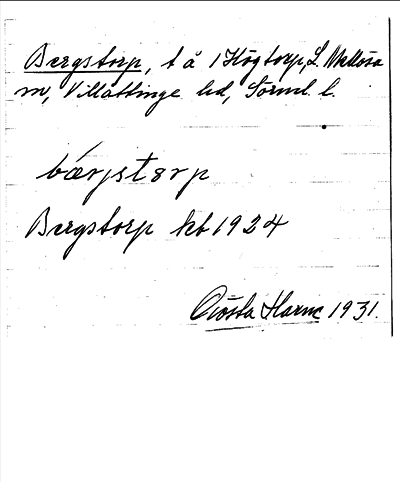 Bergstorp, t å 1 Högtorp, L. Mellösa
sn, Villåttinge hd, Sörml. l.
bǽrjstərp
Bergstorp kb 1924
Gösta Harne 1931.